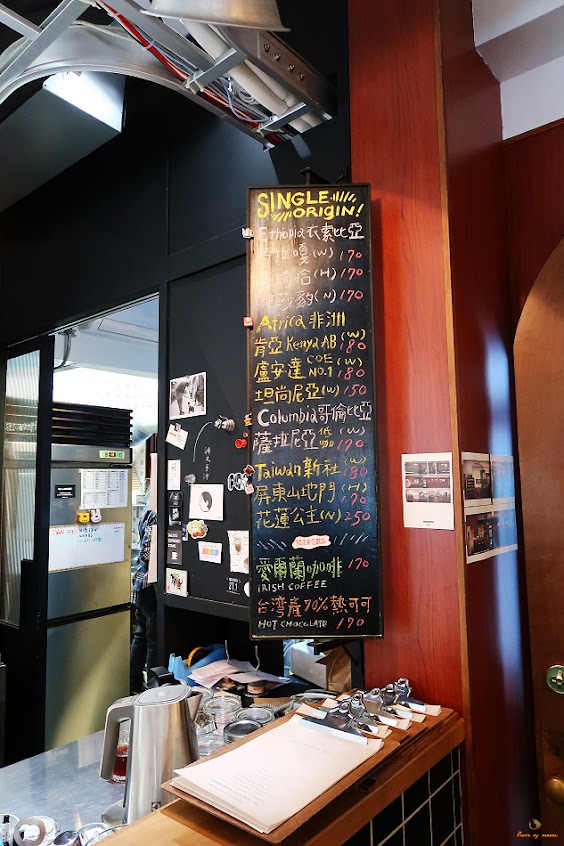 SINGLE ORIGIN!
Ethopia衣索比亞
(W) 170
(H) 170
(N) 170
Africa 非洲
肯亞 Kenya AB (W) 180
盧安達 COE NO.1 (W) 180
坦尚尼亞(W) 150
Columbia哥倫比亞
薩拉尼亞 低咖 (W) 190
Taiwan 新社(W) 180
屏東山地門(H) 170
花蓮公主(N) 250
愛爾蘭咖啡 170
IRISH COFFEE
台湾產70%熱可可
HOT CHOCLATE 190